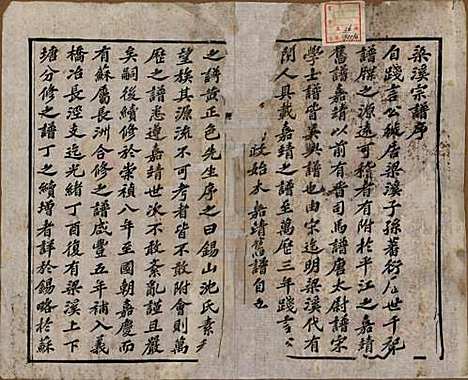 梁溪宗譜序
自踐言公徙居梁溪子孫蕃衍
譜牒之源遠可稽者有附於平江之嘉靖
舊譜嘉靖以前有晋司馬譜唐太尉譜宋
學士譜皆吳興譜也由宋迄明梁溪代有
聞人具載嘉靖之譜至萬歷三年踐言公
政始太 嘉靖舊譜自
之譜黄正色先生序之曰錫山沈氏素
望族其源流不可考者皆不敢附會則萬
歷之譜悉遵嘉靖世次不敢紊亂謹且嚴
矣嗣後續修於崇禎八年至國朝嘉慶而
有蘇屬長洲合修之譜咸豐五年補入義
橋冶長涇支迄光緒丁酉復有梁溪上下
塘分修之譜丁之續增者詳於錫略於蘇